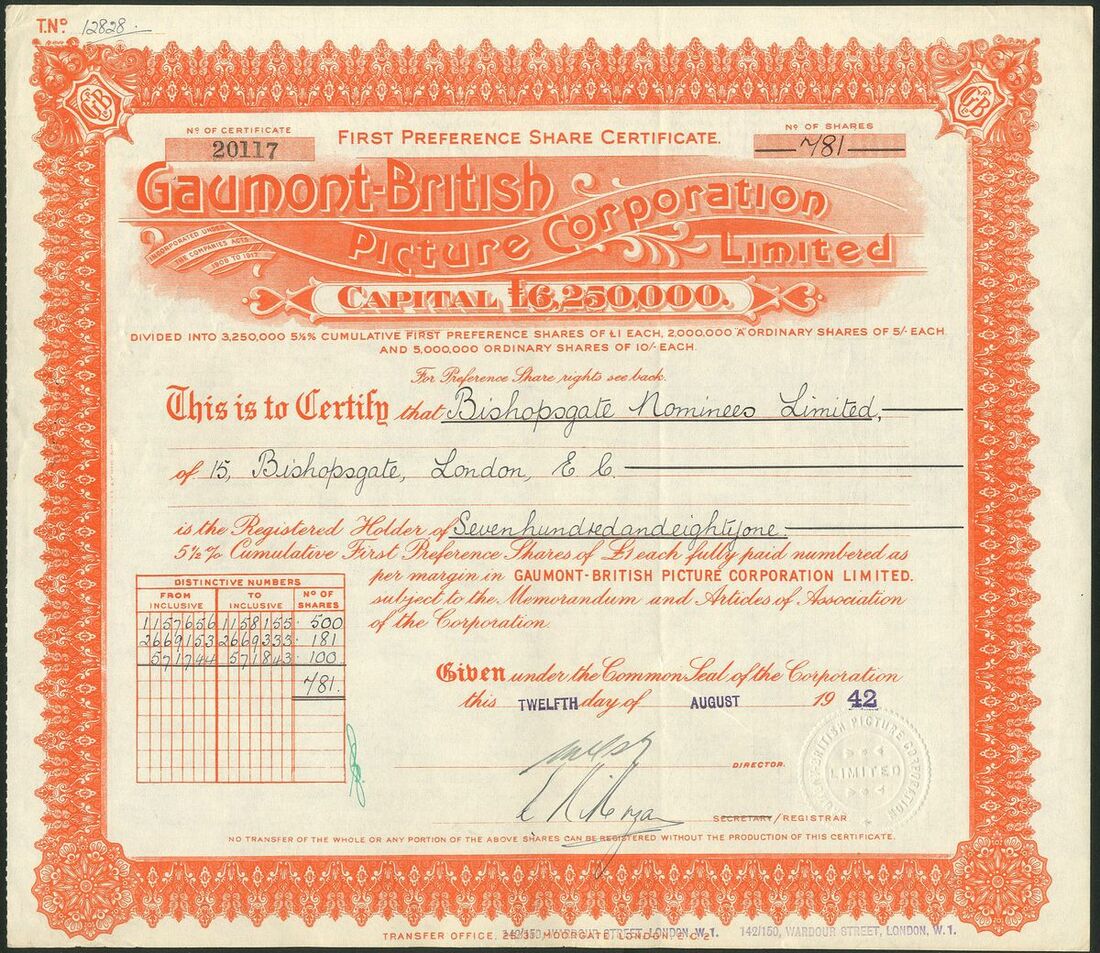 T.Nº 12828.
GB
GB
Nº OF CERTIFICATE
20117
FIRST PREFERENCE SHARE CERTIFICATE.
Nº OF SHARES
781
Gaumont-British
Picture Corporation
Limited
INCORPORATED UNDER
THE COMPANIES ACTS
1908 TO 1917.
CAPITAL £6,250,000.
DIVIDED INTO 3,250,000 5½% CUMULATIVE FIRST PREFERENCE SHARES OF £1 EACH, 2,000,000 "A" ORDINARY SHARES OF 5/- EACH
AND 5,000,000 ORDINARY SHARES OF 10/- EACH.
For Preference Share rights see back.
This is to Certify that Bishopsgate Nominees Limited,
of 15, Bishopsgate, London, E.C.
is the Registered Holder of Seven hundred and eighty one
5½% Cumulative First Preference Shares of £1 each fully paid numbered as
per margin in GAUMONT-BRITISH PICTURE CORPORATION LIMITED.
subject to the Memorandum and Articles of Association
of the Corporation.
DISTINCTIVE NUMBERS Nº OF SHARES
FROM INCLUSIVE TO INCLUSIVE
1157656 1158155 500
2669153 2669333 181
571744 571843 100
781.
Given under the Common Seal of the Corporation
this TWELFTH day of AUGUST 1942
DIRECTOR.
SECRETARY/REGISTRAR
GAUMONT-BRITISH PICTURE CORPORATION
LIMITED
NO TRANSFER OF THE WHOLE OR ANY PORTION OF THE ABOVE SHARES CAN BE REGISTERED WITHOUT THE PRODUCTION OF THIS CERTIFICATE.
TRANSFER OFFICE, 25/31 MOORGATE, LONDON, E.C.2.
142/150, WARDOUR STREET, LONDON, W.1. 142/150, WARDOUR STREET, LONDON, W.1.